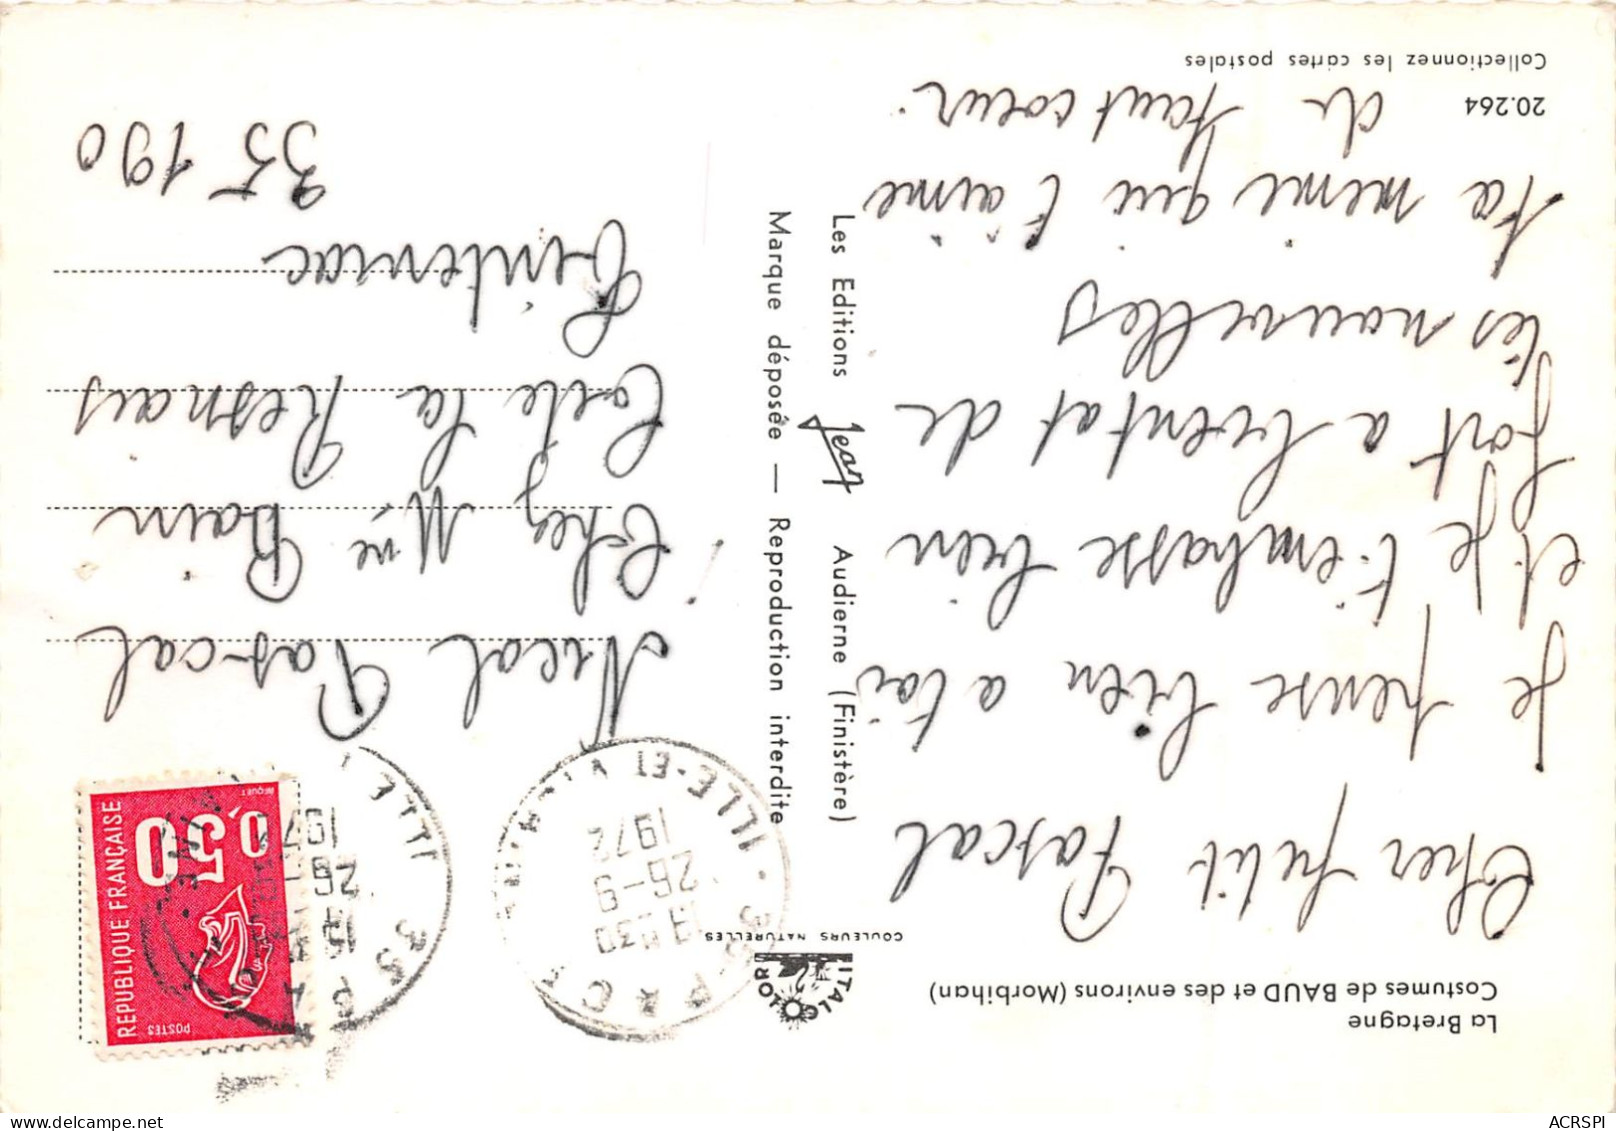 La Bretagne
Costumes de BAUD et des environs (Morbihan)
Cher petit Pascal
Je pense bien a toi
et je t'embrasse bien
fort a bientat de
tes nouvelles
ta meme qui t'aime
de tout coeur.
20.264
Collectionnez les cartes postales
ITALCOLOR
COULEURS NATURELLES
Les Editions Jean Audierne (Finistère)
Marque déposée — Reproduction interdite
REPUBLIQUE FRANÇAISE
0,50
POSTES
BEQUET
26-9
1972
ILLE-ET-V
35
Pascal
Chez Mme Bain
la Resnais
Tinteniac
35 190
ACRSPI